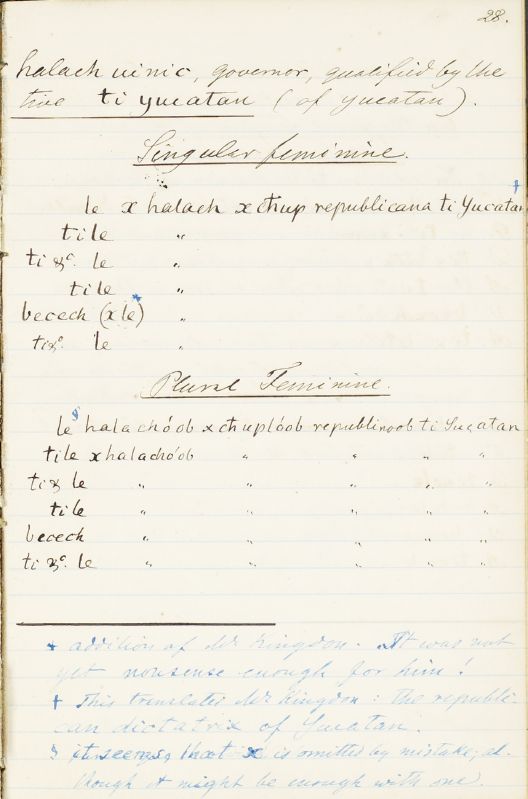 28.
halach uinic, governor, qualified by the
tive ti yucatan (of yucatan).
Singular feminine.
le x halach x chup republicana ti Yucatan †
ti le "
ti &c. le "
ti le "
becech (x le)* "
ti &c. le "
Plural Feminine.
le halachóob x chuplóob republinoob ti Yucatan
ti le x halachóob " " " "
ti & le " " " " "
ti le " " " " "
becech " " " " "
ti &c. le " " " " "
* addition of Mr Kingdon. It was not
yet nonsense enough for him!
† This translates Mr Kingdon: the republi-
can dictatrix of Yucatan.
it seems, that x is omitted by mistake, al-
though it might be enough with one.